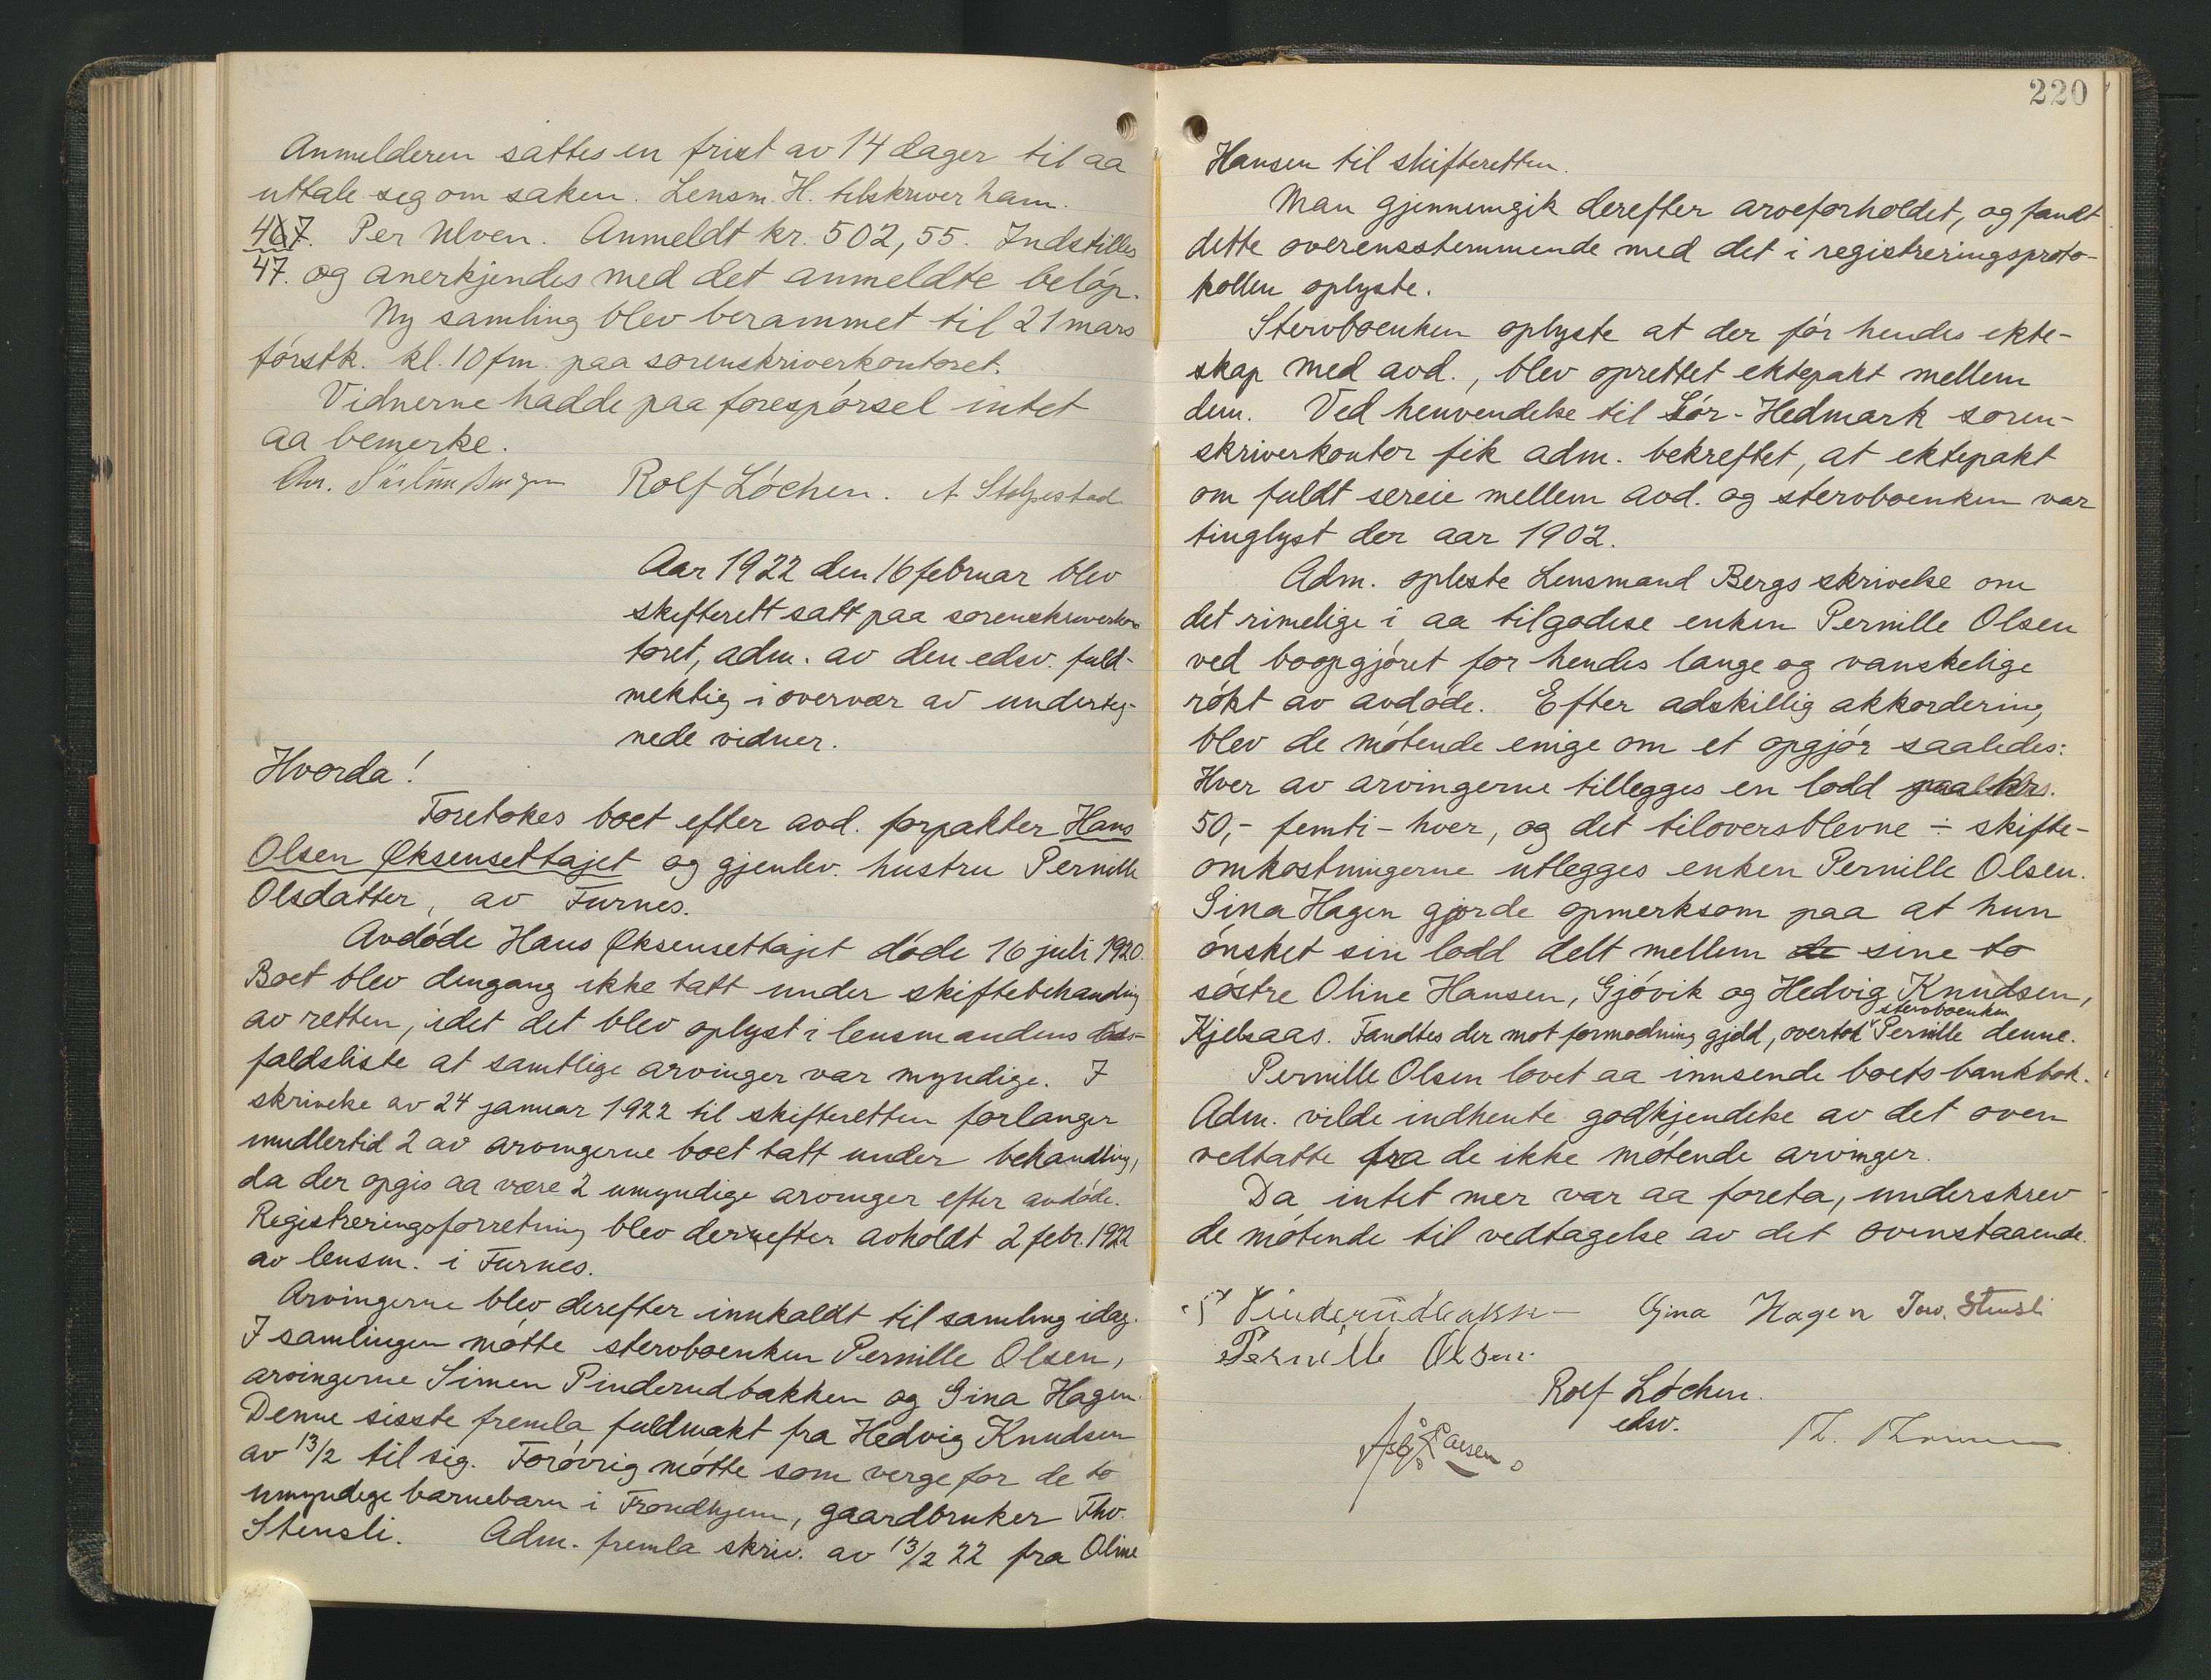 Anmelderen sattes en frist av 14 dager til aa
uttale seg om saken. Lensm. H. tilskriver ham.
467. Per Ulven. Anmeldt kr. 502,55. Indstilles
47. og anerkjendes med det anmeldte beløp.
Ny samling blev berammet til 21 mars
førstk. kl. 10 fm. paa sorenskriverkontoret.
Vidnerne hadde paa forespørsel intet
aa bemerke.
Chr. Rolf Løchen. A Stolpestad
Aar 1922 den 16 februar blev
skifterett satt paa sorenskriverkon
toret, adm. av den edsv. fuld-
mektig i overvær av underteg-
nede vidner.
Hvorda!
Foretokes boet efter avd. forpakter Hans
Olsen Øksensettajet og gjenlev. hustru Pernille
Olsdatter, av Furnes.
Avdøde Hans Øksensettajet døde 16 juli 1920.
Boet blev dengang ikke tatt under skiftebehandling
av retten, idet det blev oplyst i lensmandens døds-
faldsliste at samtlige arvinger var myndige. I
skrivelse av 24 januar 1922 til skifteretten forlanger
imidlertid 2 av arvingerne boet tatt under behandling,
da der opgis aa være 2 umyndige arvinger efter avdøde.
Registreringsforretning blev derefter avholdt 2 febr. 1922
av lensm. i Furnes.
Arvingerne blev derefter innkaldt til samling idag.
I samlingen møtte stervboenken Pernille Olsen,
arvingerne Simen Pinderudbakken og Gina Hagen.
Denne sisste fremla fuldmakt fra Hedvig Knudsen
av 13/2 til sig. Forøvrig møtte som verge for de to
umyndige barnebarn i Trondhjem, gaardbruker Thv.
Stensli. Adm. fremla skriv. av 13/2 22 fra Oline
220
Hansen til skifteretten.
Man gjennemgik derefter arveforholdet, og fandt
dette overensstemmende med det i registreringsproto-
kollen oplyste.
Stervboenken oplyste at der før hendes ekte-
skap med avd., blev oprettet ektepakt mellem
dem. Ved henvendelse til Sør-Hedmark soren-
skriverkontor fik adm. bekreftet, at ektepakt
om fuldt sereie mellem avd. og stervboenken var
tinglyst der aar 1902.
Adm. opleste Lensmand Bergs skrivelse om
det rimelige i aa tilgodese enken Pernille Olsen
ved boopgjøret for hendes lange og vanskelige
røkt av avdøde. Efter adskillig akkordering
blev de møtende enige om et opgjør saaledes:
Hver av arvingerne tillegges en lodd paa kr.
50,- femti - hver, og det tiloversblevne ÷ skifte-
omkostningerne utlegges enken Pernille Olsen.
Gina Hagen gjorde opmerksom paa at hun
ønsket sin lodd delt mellem de sine to
søstre Oline Hansen, Gjøvik og Hedvig Knudsen,
Kjelsaas. Fandtes der mot formodning gjeld, overtok stervboenken Pernille denne.
Pernille Olsen lovet aa innsende boets bankbok.
Adm. vilde indhente godkjendelse av det oven
vedtatte fra de ikke møtende arvinger.
Da intet mer var aa foreta, underskrev
de møtende til vedtagelse av det ovenstaaende.
S Pinderudbakken Gina Hagen Torv. Stensli
Pernille Olsen.
Rolf Løchen.
edsv.
Larsen